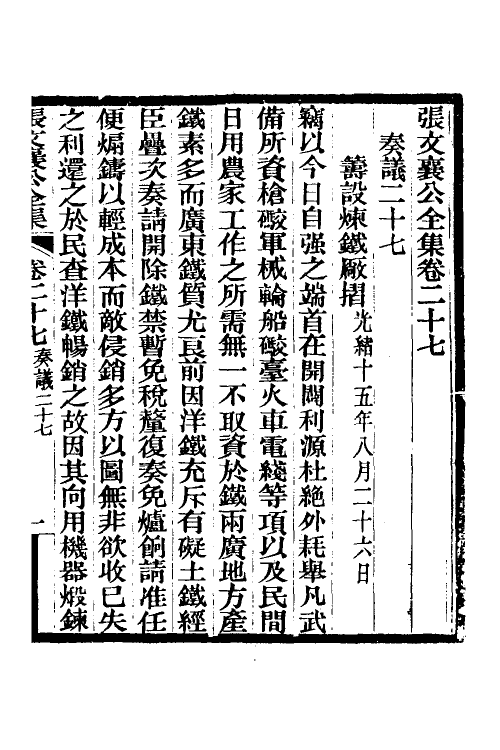 張文襄公全集卷二十七
奏議二十七
籌設煉鐵厰摺光緒十五年八月二十六日
竊以今日自强之端首在開闢利源杜絶外耗舉凡武
備所資槍礮軍械輪船礮臺火車電綫等項以及民間
日用農家工作之所需無一不取資於鐵兩廣地方產
鐵素多而廣東鐵質尤良前因洋鐵充斥有礙土鐵經
臣疊次奏請開除鐵禁暫免稅釐復奏免爐餉請准任
便煽鑄以輕成本而敵侵銷多方以圖無非欲收已失
之利還之於民查洋鐵暢銷之故因其向用機器煅鍊
張文襄公全集 卷二十七 奏議二十七 一